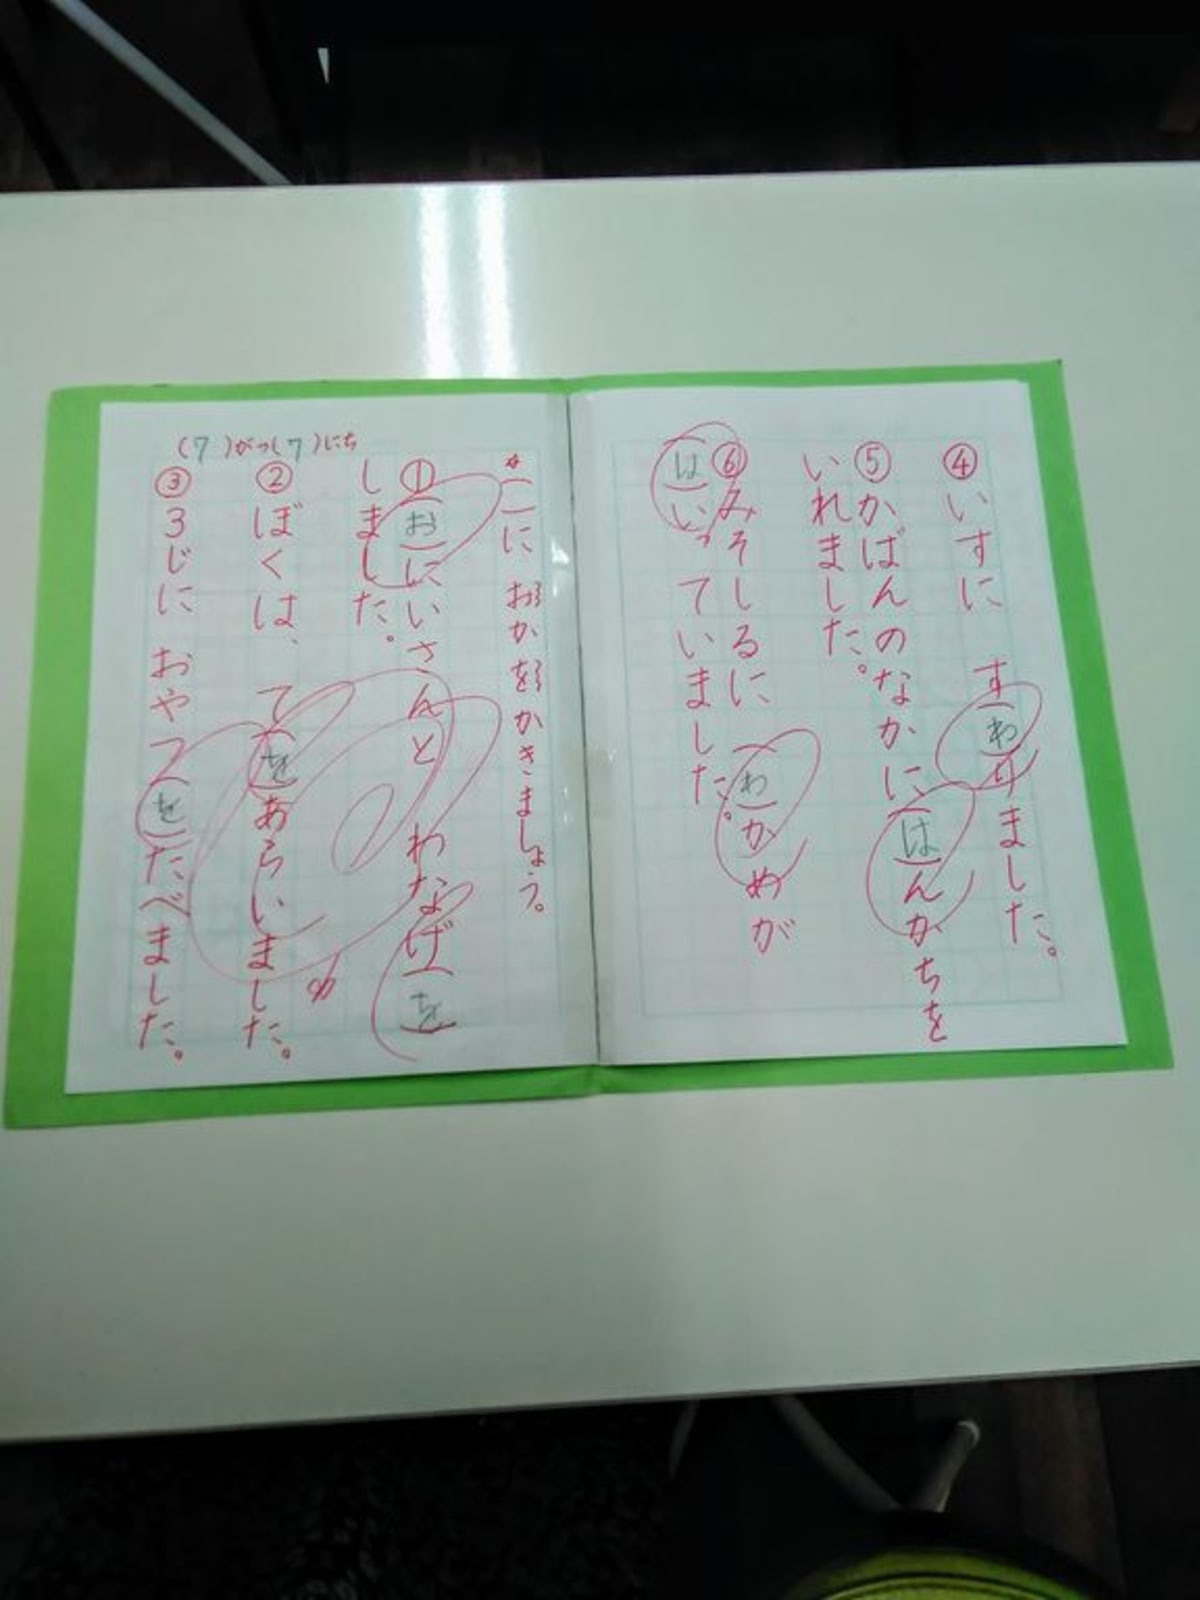 (7)がつ(7)にち
☆( )に おかをかきましょう。
①(お)にいさんと わなげ(を)
しました。
②ぼくは、 て(を)あらいました。
③3じに おやつ(を)たべました。
④いすに す(わ)りました。
⑤かばんのなかに(は)んかちを
いれました。
⑥みそしるに (わ)かめが
(は)いっていました。